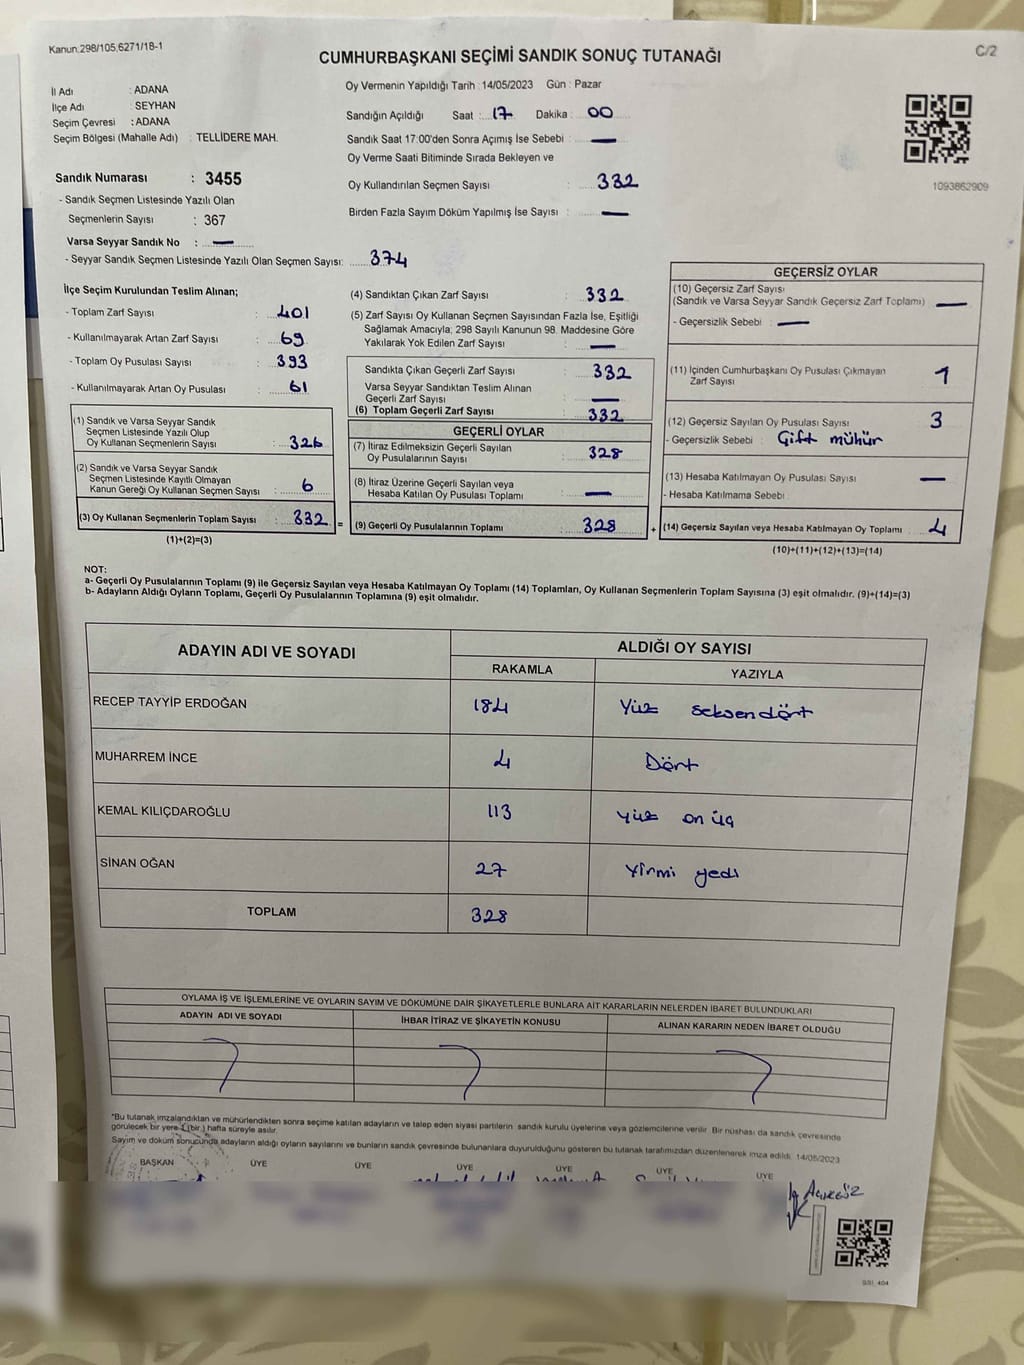 Kanun:298/105,6271/18-1
C/2
CUMHURBAŞKANI SEÇİMİ SANDIK SONUÇ TUTANAĞI
İl Adı : ADANA
İlçe Adı : SEYHAN
Seçim Çevresi : ADANA
Seçim Bölgesi (Mahalle Adı) : TELLİDERE MAH.
Sandık Numarası : 3455
- Sandık Seçmen Listesinde Yazılı Olan
Seçmenlerin Sayısı : 367
Varsa Seyyar Sandık No : —
- Seyyar Sandık Seçmen Listesinde Yazılı Olan Seçmen Sayısı: 374
Oy Vermenin Yapıldığı Tarih : 14/05/2023 Gün : Pazar
Sandığın Açıldığı Saat : 17 Dakika : 00
Sandık Saat 17:00'den Sonra Açımış İse Sebebi : —
Oy Verme Saati Bitiminde Sırada Bekleyen ve
Oy Kullandırılan Seçmen Sayısı : 332
Birden Fazla Sayım Döküm Yapılmış İse Sayısı : —
1093862909
İlçe Seçim Kurulundan Teslim Alınan;
- Toplam Zarf Sayısı : 401
- Kullanılmayarak Artan Zarf Sayısı : 69
- Toplam Oy Pusulası Sayısı : 393
- Kullanılmayarak Artan Oy Pusulası : 61
(1) Sandık ve Varsa Seyyar Sandık
Seçmen Listesinde Yazılı Olup
Oy Kullanan Seçmenlerin Sayısı : 326
(2) Sandık ve Varsa Seyyar Sandık
Seçmen Listesinde Kayıtlı Olmayan
Kanun Gereği Oy Kullanan Seçmen Sayısı : 6
(3) Oy Kullanan Seçmenlerin Toplam Sayısı : 332 =
(1)+(2)=(3)
(4) Sandıktan Çıkan Zarf Sayısı : 332
(5) Zarf Sayısı Oy Kullanan Seçmen Sayısından Fazla İse, Eşitliği
Sağlamak Amacıyla; 298 Sayılı Kanunun 98. Maddesine Göre
Yakılarak Yok Edilen Zarf Sayısı : —
Sandıkta Çıkan Geçerli Zarf Sayısı : 332
Varsa Seyyar Sandıktan Teslim Alınan
Geçerli Zarf Sayısı : —
(6) Toplam Geçerli Zarf Sayısı : 332
GEÇERLİ OYLAR
(7) İtiraz Edilmeksizin Geçerli Sayılan
Oy Pusulalarının Sayısı : 328
(8) İtiraz Üzerine Geçerli Sayılan veya
Hesaba Katılan Oy Pusulası Toplamı : —
(9) Geçerli Oy Pusulalarının Toplamı : 328 +
GEÇERSİZ OYLAR
(10) Geçersiz Zarf Sayısı
(Sandık ve Varsa Seyyar Sandık Geçersiz Zarf Toplamı) —
- Geçersizlik Sebebi : —
(11) İçinden Cumhurbaşkanı Oy Pusulası Çıkmayan
Zarf Sayısı 1
(12) Geçersiz Sayılan Oy Pusulası Sayısı 3
- Geçersizlik Sebebi : Çift mühür
(13) Hesaba Katılmayan Oy Pusulası Sayısı —
- Hesaba Katılmama Sebebi
(14) Geçersiz Sayılan veya Hesaba Katılmayan Oy Toplamı : 4
(10)+(11)+(12)+(13)=(14)
NOT:
a- Geçerli Oy Pusulalarının Toplamı (9) ile Geçersiz Sayılan veya Hesaba Katılmayan Oy Toplamı (14) Toplamları, Oy Kullanan Seçmenlerin Toplam Sayısına (3) eşit olmalıdır. (9)+(14)=(3)
b- Adayların Aldığı Oyların Toplamı, Geçerli Oy Pusulalarının Toplamına (9) eşit olmalıdır.
ADAYIN ADI VE SOYADI ALDIĞI OY SAYISI
RAKAMLA YAZIYLA
RECEP TAYYİP ERDOĞAN 184 Yüz seksendört
MUHARREM İNCE 4 Dört
KEMAL KILIÇDAROĞLU 113 yüz on üç
SİNAN OĞAN 27 Yirmi yedi
TOPLAM 328
OYLAMA İŞ VE İŞLEMLERİNE VE OYLARIN SAYIM VE DÖKÜMÜNE DAİR ŞİKAYETLERLE BUNLARA AİT KARARLARIN NELERDEN İBARET BULUNDUKLARI
ADAYIN ADI VE SOYADI İHBAR İTİRAZ VE ŞİKAYETİN KONUSU ALINAN KARARIN NEDEN İBARET OLDUĞU
*Bu tutanak imzalandıktan ve mühürlendikten sonra seçime katılan adayların ve talep eden siyasi partilerin sandık kurulu üyelerine veya gözlemcilerine verilir. Bir nüshası da sandık çevresinde
görülecek bir yere 1 (bir) hafta süreyle asılır.
Sayım ve döküm sonucunda adayların aldığı oyların sayılarını ve bunların sandık çevresinde bulunanlara duyurulduğunu gösteren bu tutanak tarafımızdan düzenlenerek imza edildi. 14/05/2023
BAŞKAN ÜYE ÜYE ÜYE ÜYE ÜYE ÜYE